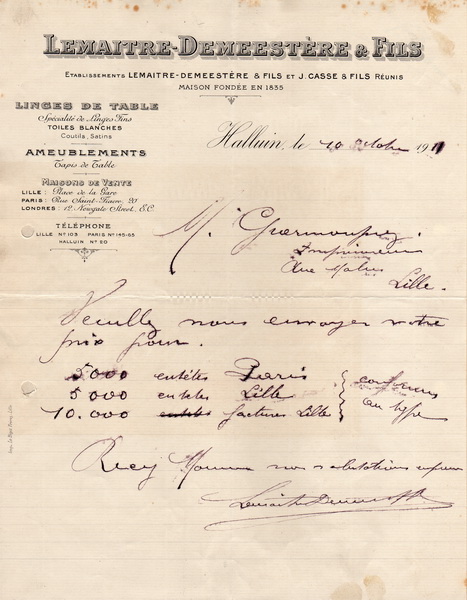 LEMAITRE-DEMEESTÈRE & FILS
ETABLISSEMENTS LEMAITRE-DEMEESTÈRE & FILS ET J. CASSE & FILS RÉUNIS
MAISON FONDÉE EN 1835
LINGES DE TABLE
Spécialité de Linges Fins
TOILES BLANCHES
Coutils, Satins
AMEUBLEMENTS
Tapis de Table
MAISONS DE VENTE
LILLE : Place de la Gare
PARIS : Rue Saint-Fiacre, 20
LONDRES : 12, Newgate Street, E.C.
TÉLÉPHONE
LILLE Nº 103 PARIS Nº 145-65
HALLUIN Nº 20
Halluin, le 10 Octobre 1911
M. Guermonprez.
Imprimeur
Rue
Lille.
Veuillez nous envoyer votre
prix pour.
5000 entêtes Paris
5000 entetes Lille
10.000 factures Lille
conformes
au type
nos salutations
Lemaitre Demeestère